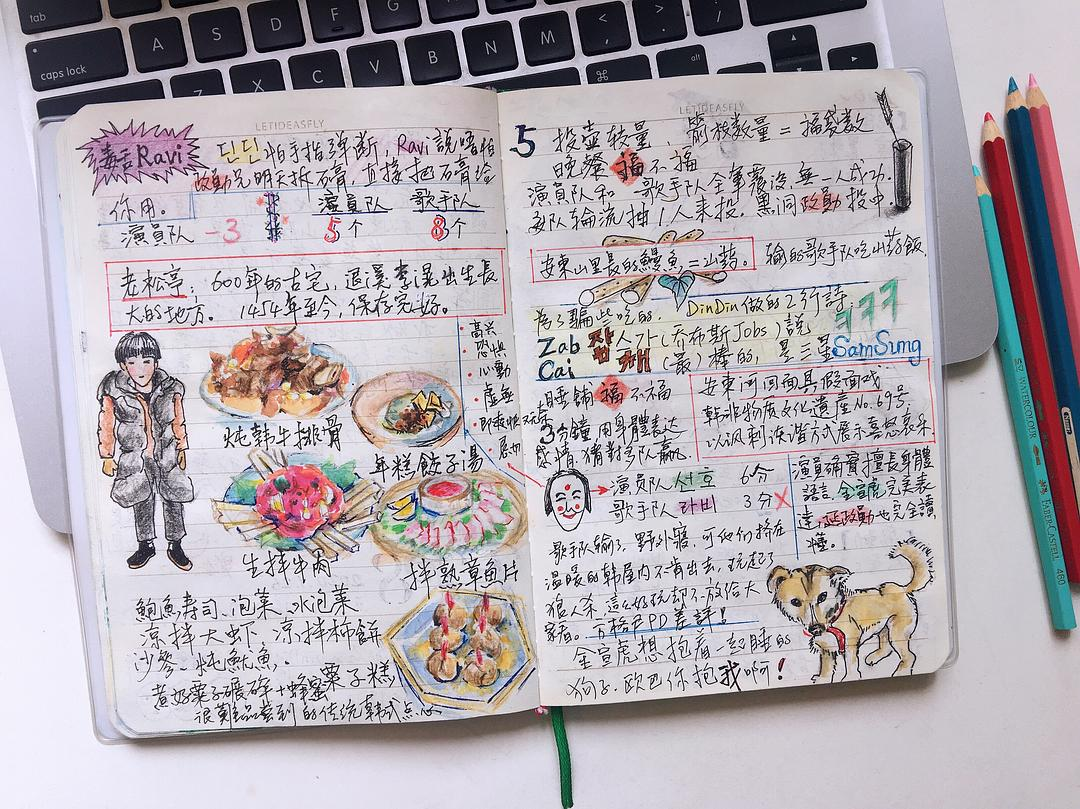 tab
caps lock
A
S
D
F
G
H
J
K
L
Z
X
C
V
B
N
M
alt
LETIDEASFLY
毒舌Ravi
딘딘怕手指弹断, Ravi說唔怕
政勳兄明天拆石膏, 直接把石膏给
你用。
演員队 歌手队
演員队 -3 5个 8个
老松亭: 600年的古宅, 退溪李滉出生長
大的地方。 1454年至今, 保存完好。
·高兴
·恐惧
·心動
·虛無
炖韩牛排骨
年糕餃子湯
生拌牛肉
拌熟章鱼片
鮑鱼寿司、泡菜、水泡菜
凉拌大虾、凉拌柿餅
沙參、炖魷鱼。
煮好栗子碾碎+蜂蜜 栗子糕,
很難品尝到的传统韩式点心
LETIDEASFLY
5 投壶较量, 箭枝数量=福袋数
晚餐福不福
演員队和 歌手队全軍覆没, 無一人成功。
多队轮流抽1人来投, 黑洞政勳投中。
安東山里長的鰻鱼=山药。 输的歌手队吃山药飯
為了騙些吃的, DinDin做的2行詩。ㅋㅋㅋ
Zab 잡 人가(乔布斯Jobs)說
Cai 채 (最)棒的, 是三星SamSung
睡铺福不福
3分鐘用身體表达
感情, 猜對多队赢
安東河回面具假面戏
韩非物质文化遺產No.69号
以讽刺诙谐方式展示喜怒哀樂
演員队 선호 6分
歌手队 라비 3分 ×
演員确實擅長身體
語言, 金宣虎完美表
達, 延政勳也完全讀
懂。
歌手队输了, 野外寢, 可他们挤在
温暖的韩屋内不肯出去, 玩起了
狼人杀, 這么好玩却不放给大
家看。方格尹PD差評!
金宣虎想抱着一起睡的
狗子, 欧巴你抱我啊!
WATERCOLOUR
FABER-CASTELL
460